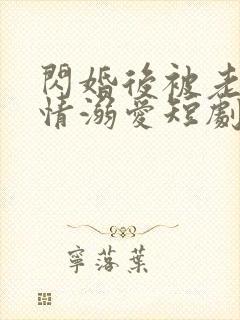 閃婚後被老
情溺愛短劇
寧落葉